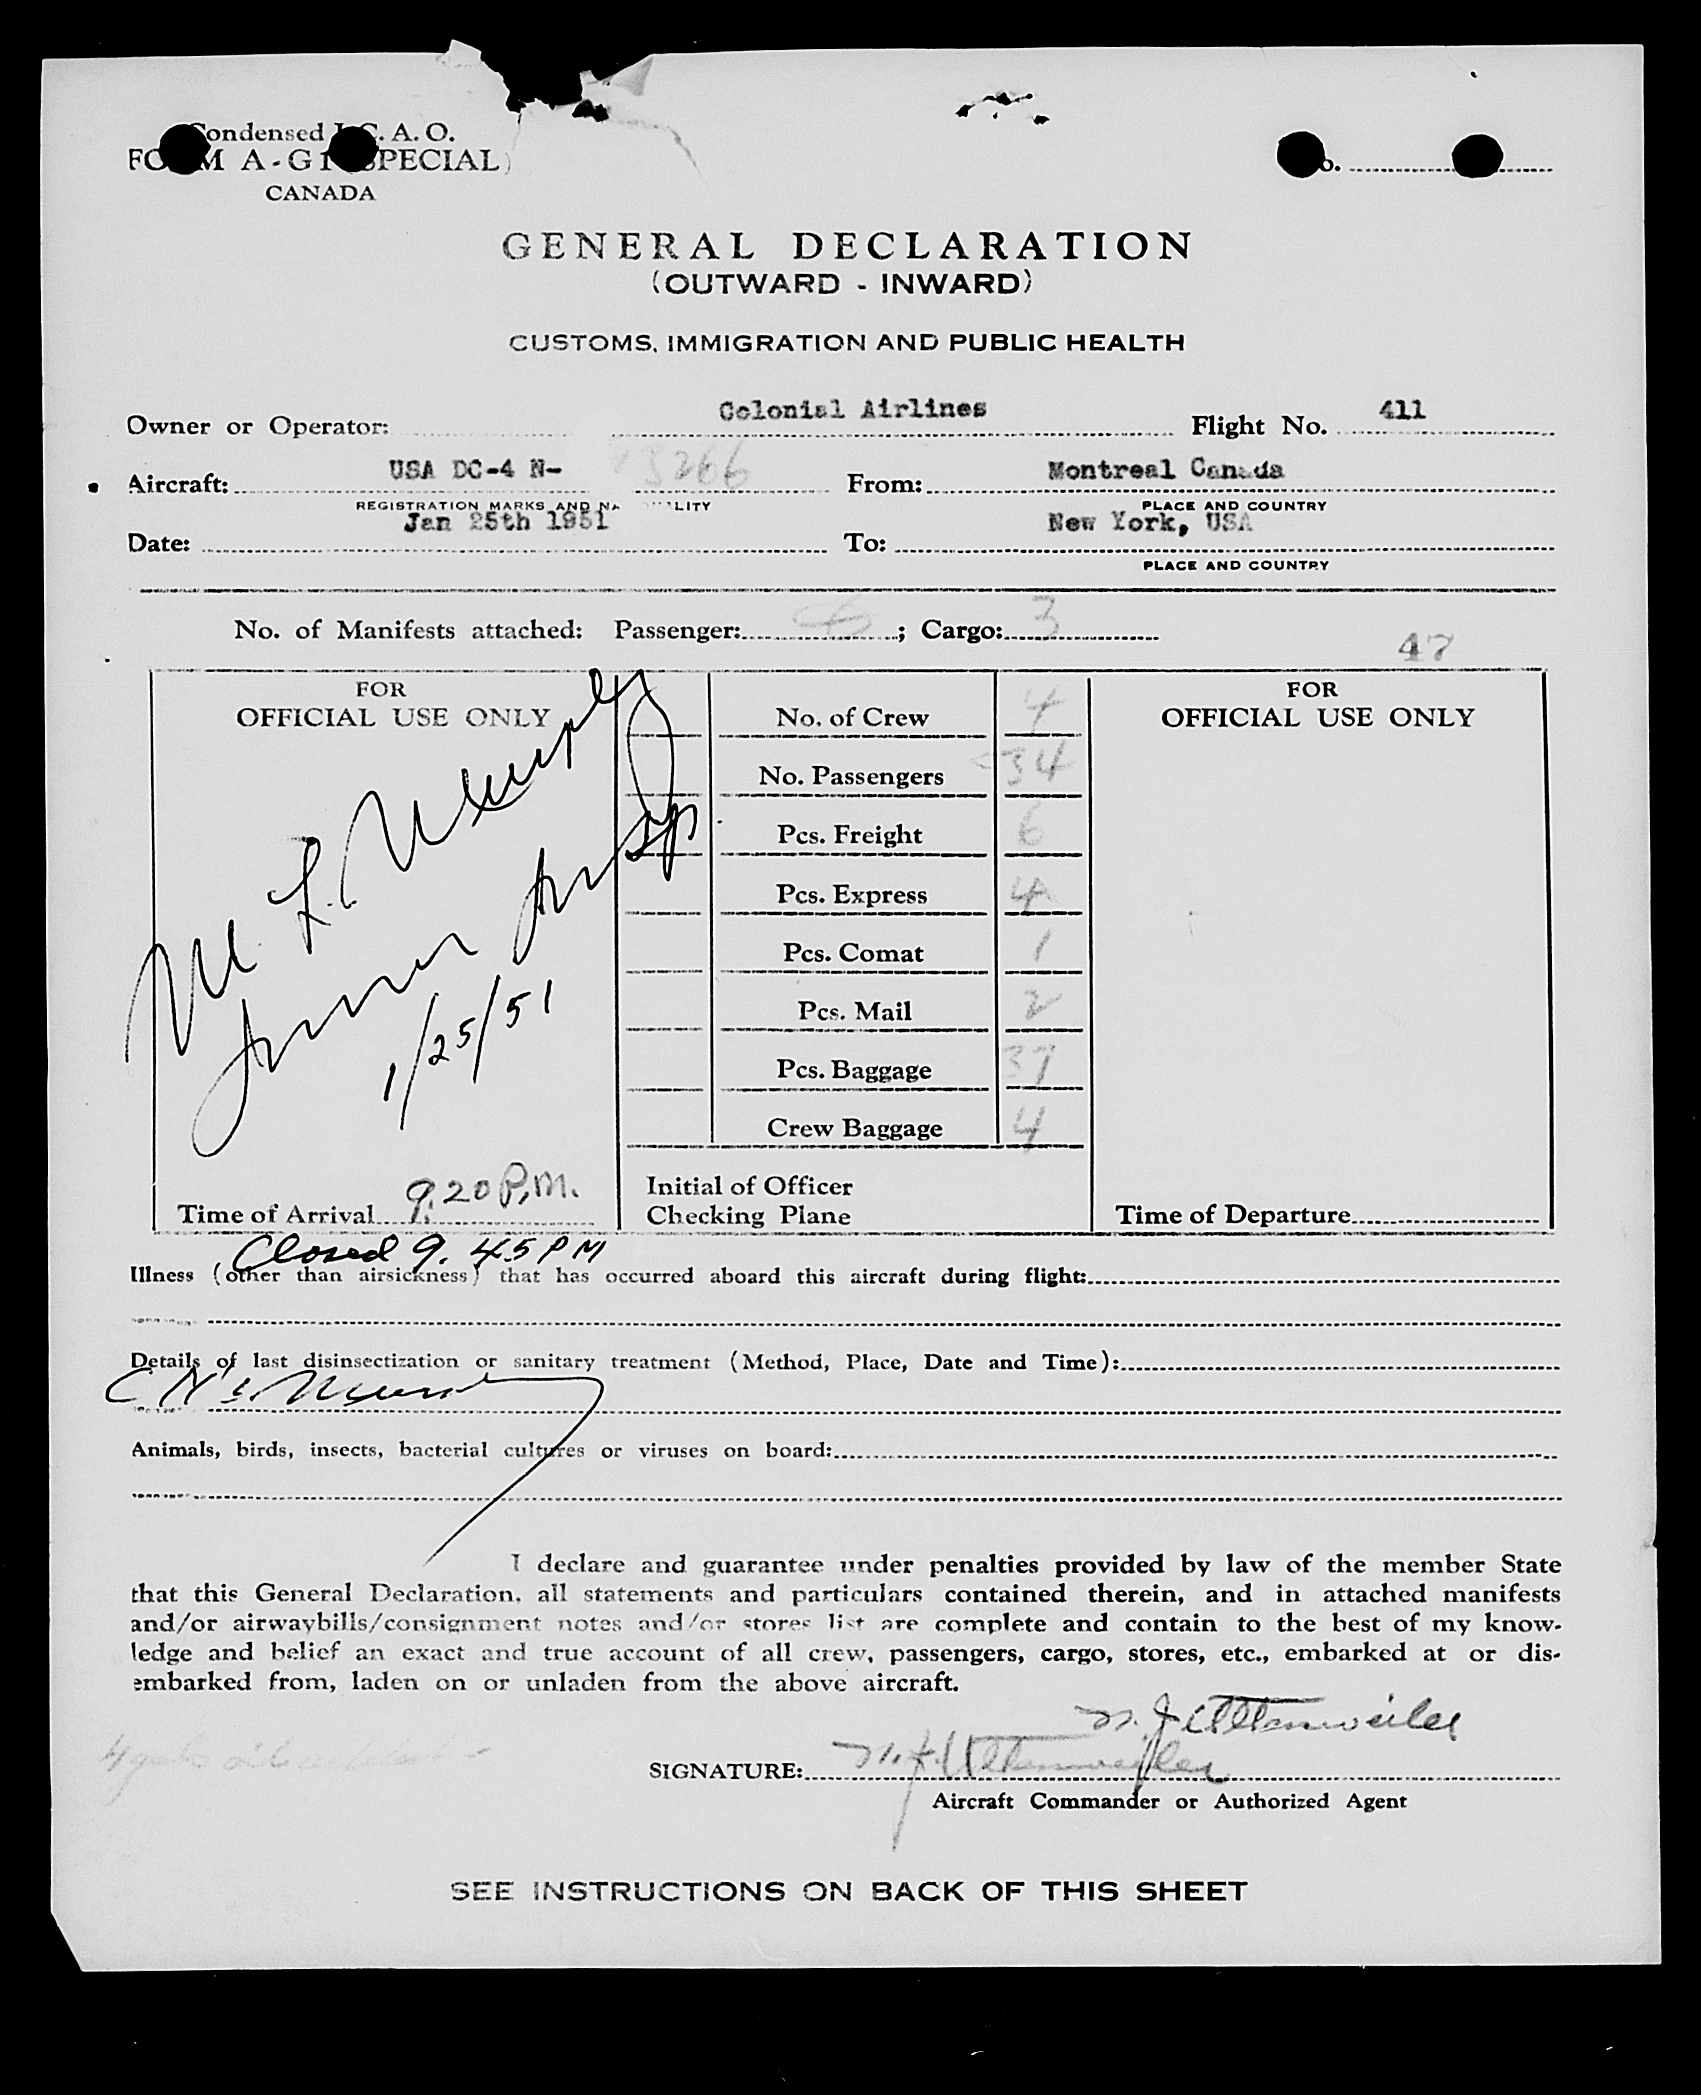 Condensed I. C. A. O.
FORM A-G1 (SPECIAL)
CANADA
No.
GENERAL DECLARATION
(OUTWARD - INWARD)
CUSTOMS, IMMIGRATION AND PUBLIC HEALTH
Owner or Operator: Colonial Airlines Flight No. 411
Aircraft: USA DC-4 N- From: Montreal Canada
REGISTRATION MARKS AND NATIONALITY PLACE AND COUNTRY
Date: Jan 25th 1951 To: New York, USA
PLACE AND COUNTRY
No. of Manifests attached: Passenger: 6; Cargo: 3
47
FOR
OFFICIAL USE ONLY
M. L. Murphy
1/25/51
Time of Arrival 9.20 P.M.
No. of Crew 4
No. Passengers 34
Pcs. Freight 6
Pcs. Express 4
Pcs. Comat 1
Pcs. Mail 2
Pcs. Baggage 37
Crew Baggage 4
Initial of Officer
Checking Plane
FOR
OFFICIAL USE ONLY
Time of Departure
Closed 9.45 PM
Illness (other than airsickness) that has occurred aboard this aircraft during flight:
Details of last disinsectization or sanitary treatment (Method, Place, Date and Time):
Animals, birds, insects, bacterial cultures or viruses on board:
I declare and guarantee under penalties provided by law of the member State
that this General Declaration, all statements and particulars contained therein, and in attached manifests
and/or airwaybills/consignment notes and/or stores list are complete and contain to the best of my know-
ledge and belief an exact and true account of all crew, passengers, cargo, stores, etc., embarked at or dis-
embarked from, laden on or unladen from the above aircraft.
SIGNATURE:
Aircraft Commander or Authorized Agent
SEE INSTRUCTIONS ON BACK OF THIS SHEET